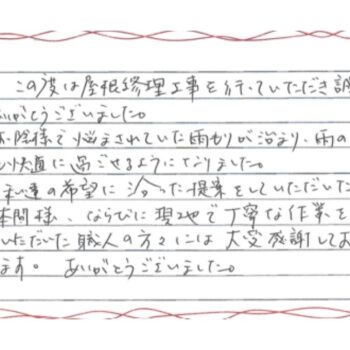 この度は屋根修理工事を行っていただき誠
ありがとうございました。
お陰様で悩まされていた雨もりが治まり、雨の
も快適に過ごせるようになりました。
私達の希望に沿った提案をしていただいた
本間様、ならびに現地で丁寧な作業を
いただいた職人の方々には大変感謝してお
ます。ありがとうございました。